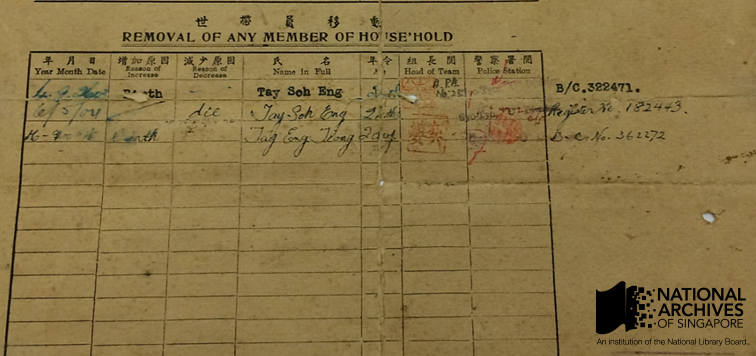 世帶員移動
REMOVAL OF ANY MEMBER OF HOUSE'HOLD
年月日 增加原因 減少原因 氏名 年令 組長関 警察署関
Year Month Date Reason of Increase Reason of Decrease Name in Full Head of Team Police Station
Birth Tay Soh Eng B/C.322471.
6/5/04 die Tay Soh Eng Register No. 182443.
Birth Tay Eng Kong 2 day B.C. No. 362272
NATIONAL
ARCHIVES
OF SINGAPORE
An institution of the National Library Board